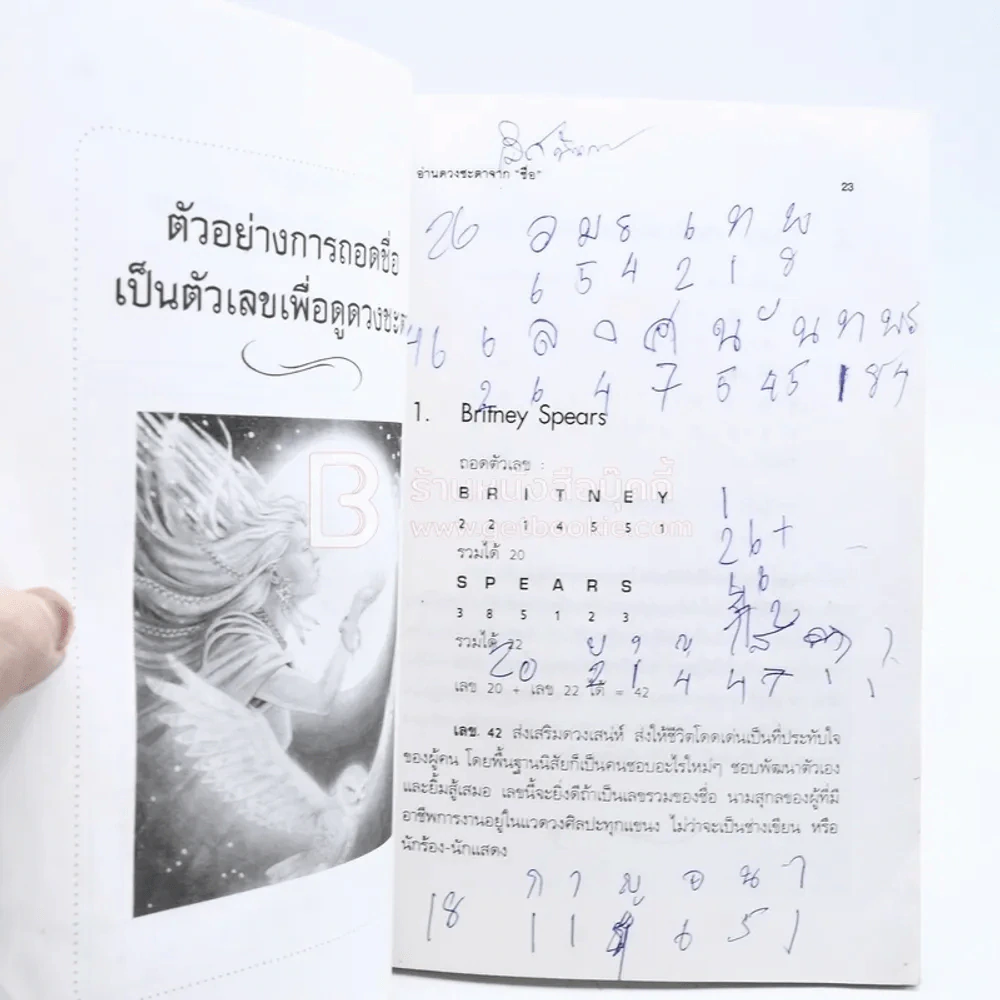 ตัวอย่างการถอดชื่อ
เป็นตัวเลขเพื่อดูดวงชะต
อ่านดวงชะตาจาก "ชื่อ"
23
26 อ ม ร เ ท พ
6 5 4 2 1 8
46 เ ล ศ น ั น ท พ ร
2 6 4 7 5 4 5 1 8 4
1. Britney Spears
ถอดตัวเลข :
B R I T N E Y
2 2 1 4 5 5 1
รวมได้ 20
S P E A R S
3 8 5 1 2 3
รวมได้ 22
เลข 20 + เลข 22 ได้ = 42
1
26+
46
20
2 1 4 4 7
เลข 42 ส่งเสริมดวงเสน่ห์ ส่งให้ชีวิตโดดเด่นเป็นที่ประทับใจ
ของผู้คน โดยพื้นฐานนิสัยก็เป็นคนชอบอะไรใหม่ๆ ชอบพัฒนาตัวเอง
และยิ้มสู้เสมอ เลขนี้จะยิ่งดีถ้าเป็นเลขรวมของชื่อ นามสกุลของผู้ที่มี
อาชีพการงานอยู่ในแวดวงศิลปะทุกแขนง ไม่ว่าจะเป็นช่างเขียน หรือ
นักร้อง-นักแสดง
ก า ญ จ น า
18 1 1 4 6 5 1
B ร้านหนังสือบุ๊คกี้
www.getbookie.com